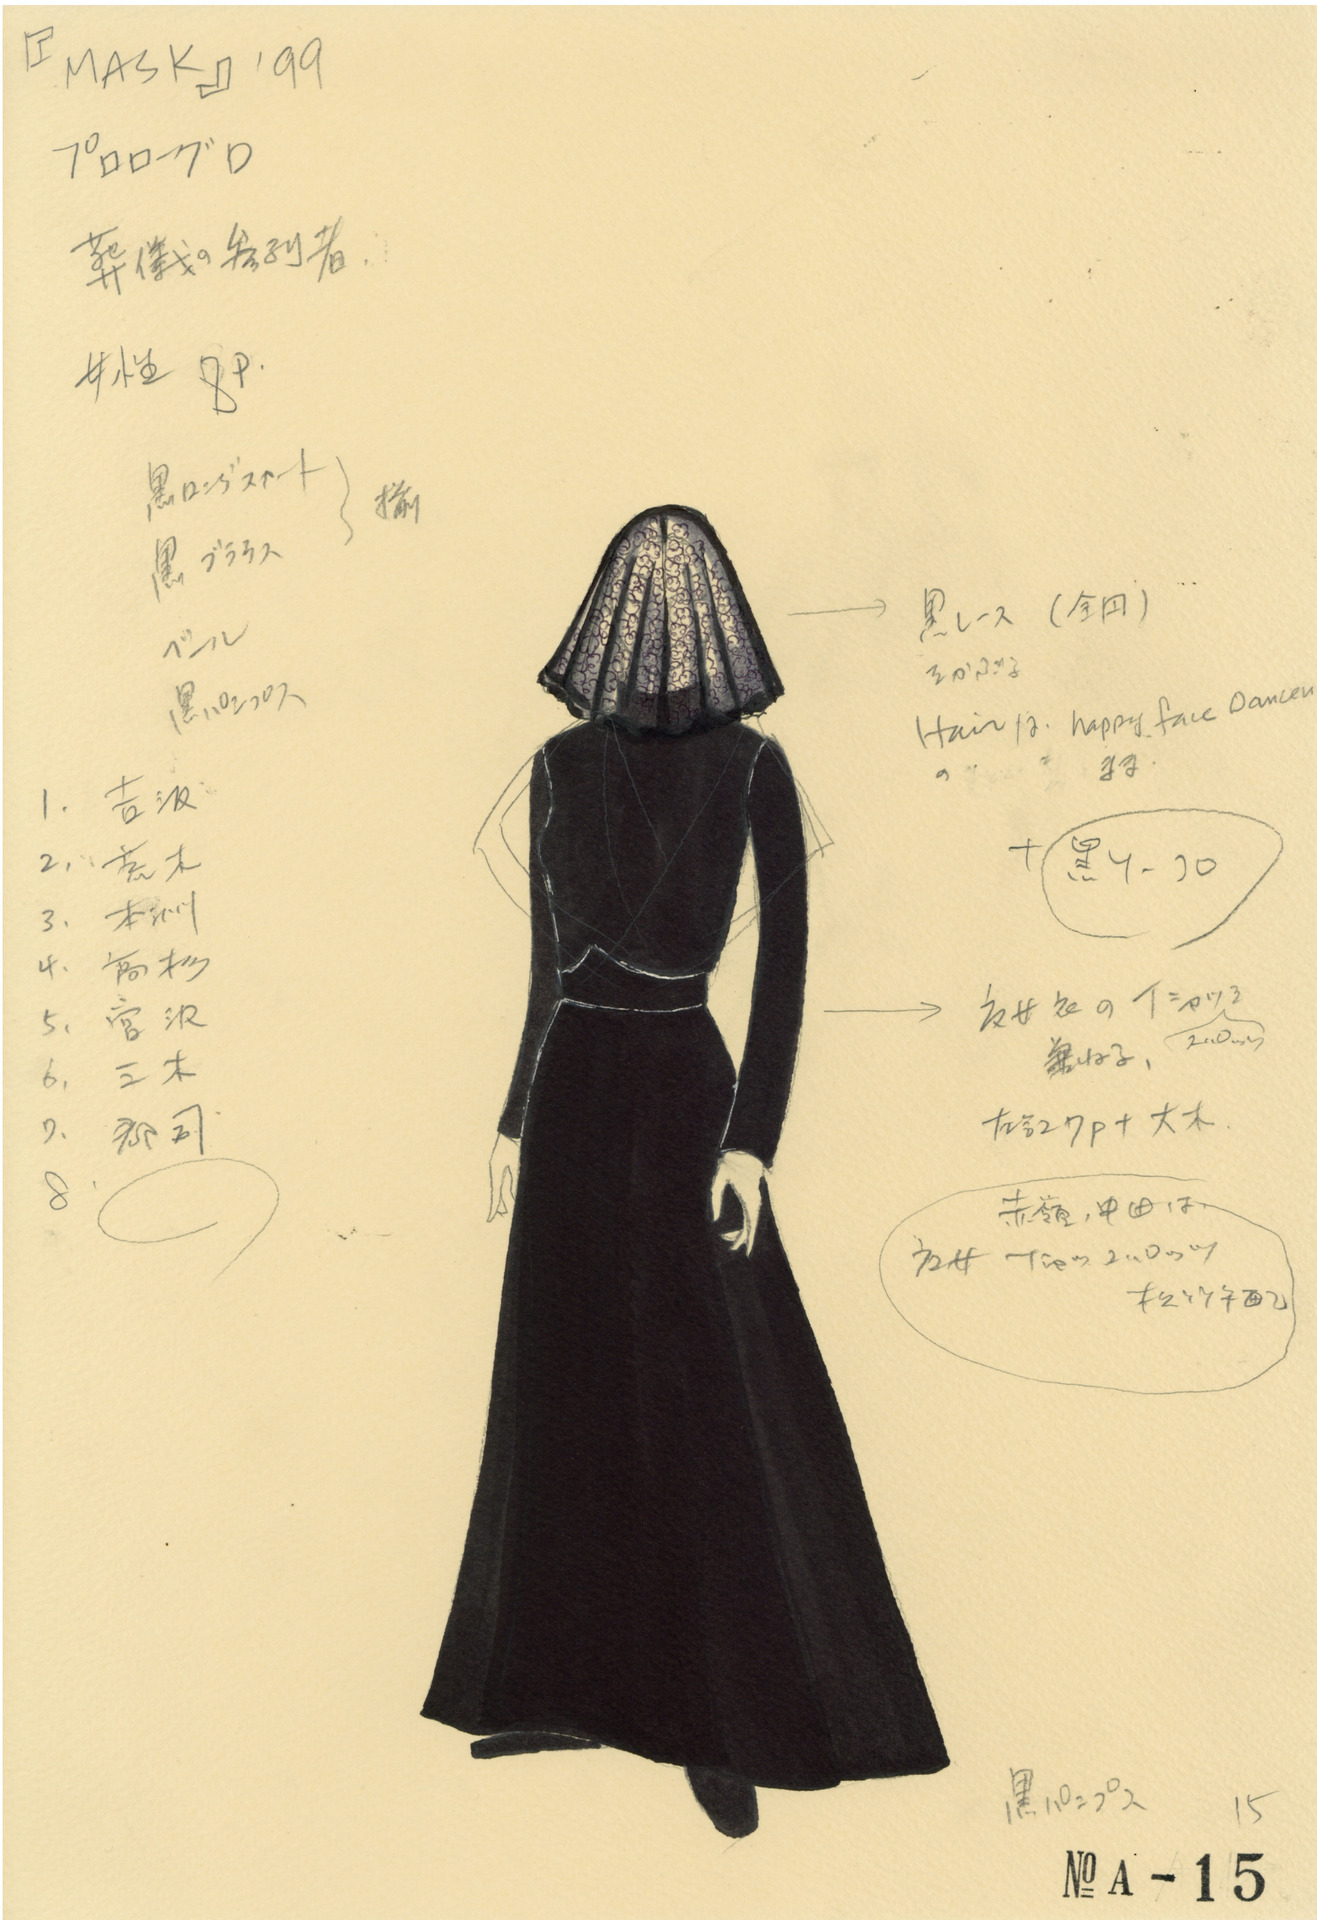 『MASK』'99
プロローグロ
葬儀の参列者.
女性 8P.
黒ロングスカート
黒ブラウス
揃
ベール
黒パンプス
1. 吉沢
2. 荒木
3. 本州
4. 高杉
5. 宮沢
6. 三木
7. 郡司
8.
黒レース (全円)
をかぶる
Hairは. happy face Dancer
の まま.
+ 黒リーフロ
衣の
兼ねる、
27P+大木.
赤嶺、中田は、
黒パンプス 15
№ A-15